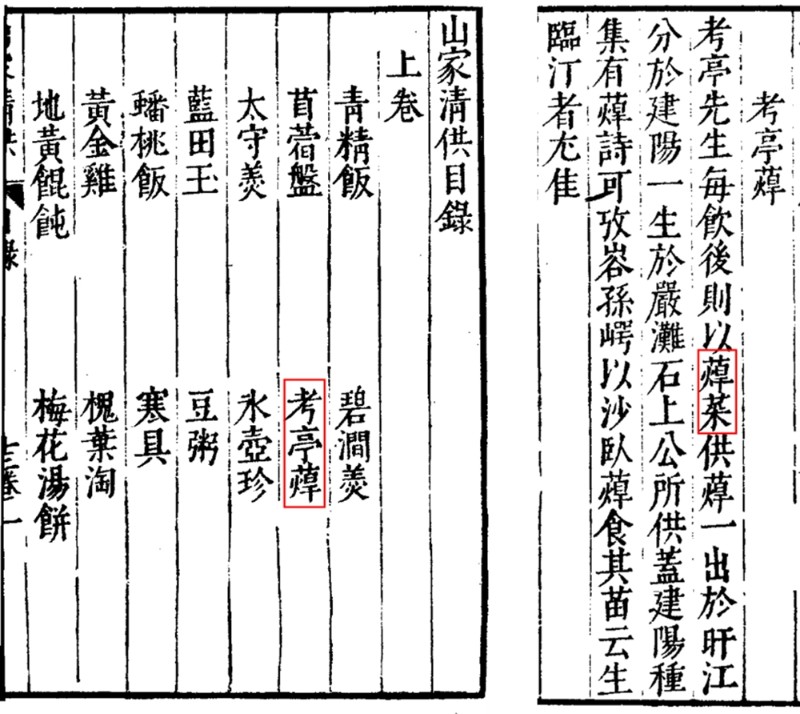 山家清供目錄
上卷
青精飯　碧澗羹
苜蓿盤　考亭蔊
太守羹　氷壺珍
藍田玉　豆粥
蟠桃飯　寒具
黃金雞　槐葉淘
地黃餛飩　梅花湯餅
考亭蔊
考亭先生每飲後則以蔊菜供蔊一出於盱江
分於建陽一生於嚴灘石上公所供蓋建陽種
集有蔊詩可攷峇孫崿以沙臥蔊食其苗云生
臨汀者尤佳